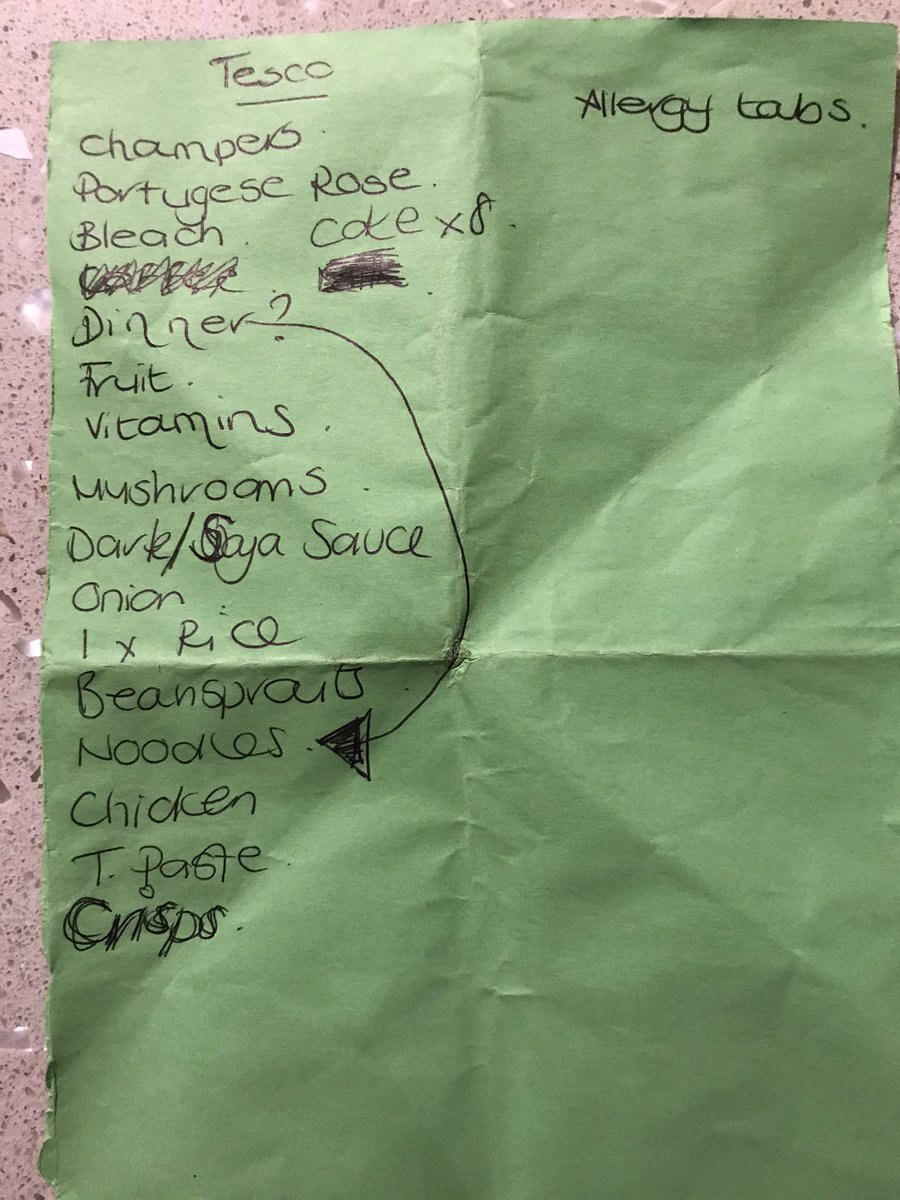 Tesco
Allergy tabs.
Champers
Portugese Rose.
Bleach. Coke x8.
Dinner?
Fruit.
Vitamins.
Mushrooms.
Dark/Soya Sauce
Onion.
1 x Rice
Beansprouts.
Noodles.
Chicken
T. Paste.
Crisps.